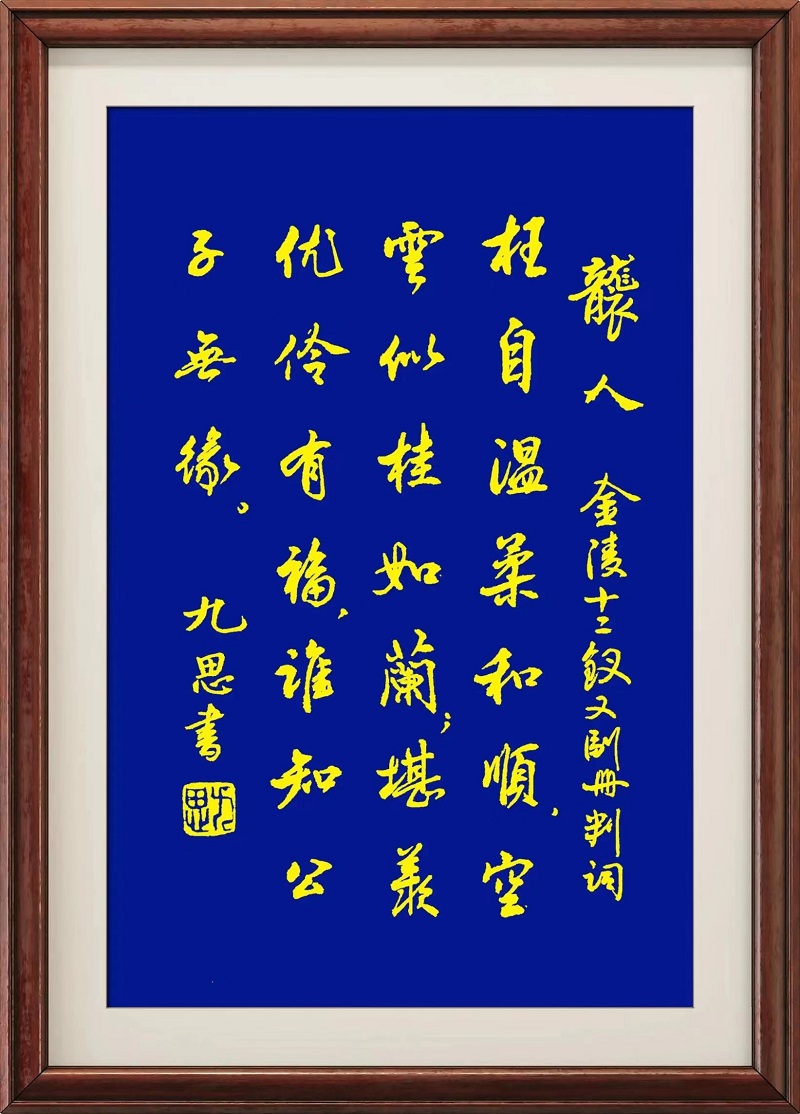 襲人 金陵十二釵又副册判词
枉自温柔和順,空
雲似桂如蘭;堪羡
优伶有福,谁知公
子無缘。 九思书
九思